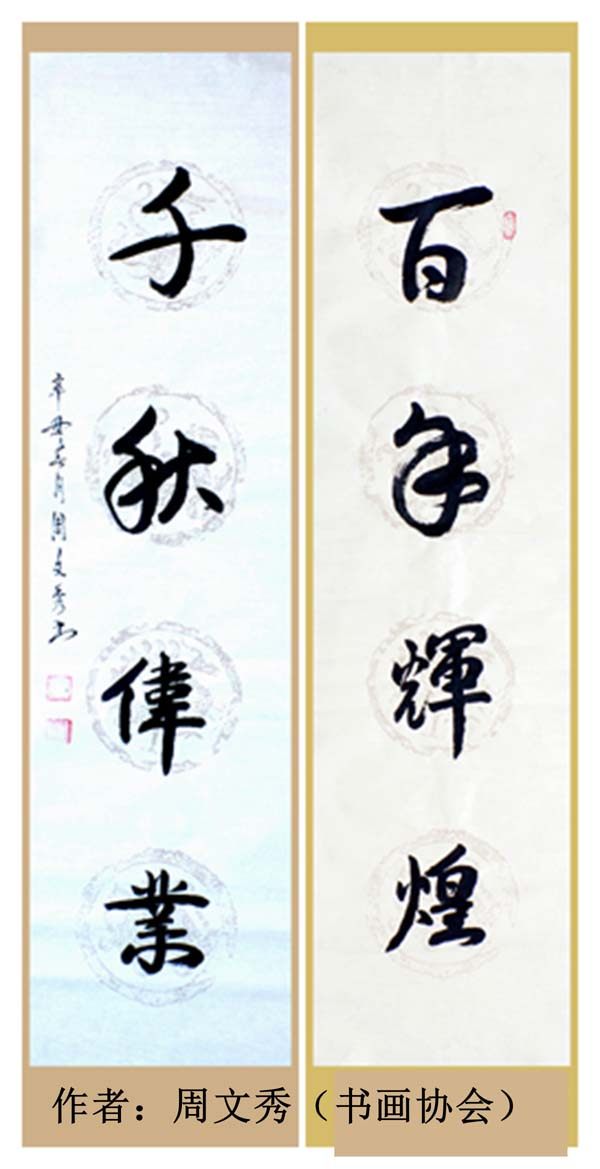 百年輝煌
千秋偉業
辛丑春月周文秀书
作者：周文秀（书画协会）